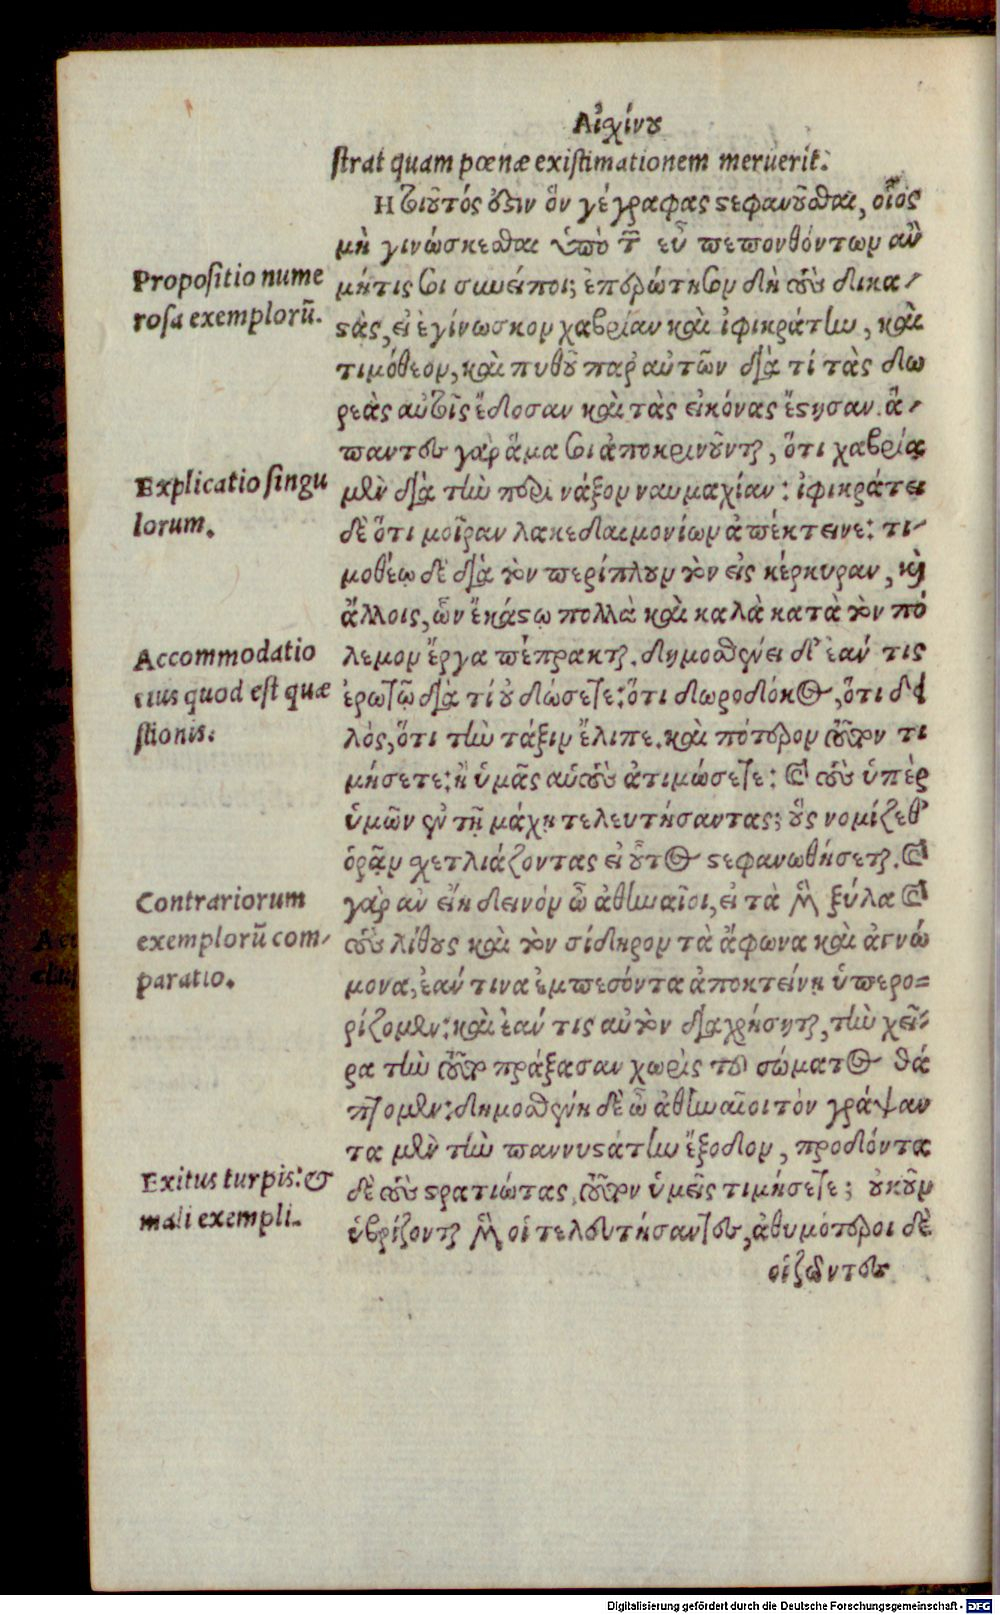 Αἰσχίνου
strat quam pœnæ existimationem meruerit.
Η τοιοῦτός ἐστιν ὃν γέγραφας στεφανοῦσθαι, οἷος
μὴ γινώσκεσθαι ὑπὸ τῶν εὖ πεπονθότων ἂν
Propositio nume
rosa exemplorū.
μήτις σοι συνείποι; ἐπερώτησον δὴ τοὺς δικα-
στὰς, εἰ ἐγίνωσκον χαβρίαν καὶ ἰφικράτην, καὶ
τιμόθεον, καὶ πυθοῦ παρ αὐτῶν διὰ τί τὰς δω
ρεὰς αὐτοῖς ἔδοσαν καὶ τὰς εἰκόνας ἔστησαν. ἅ-
παντες γὰρ ἅμα σοι ἀποκρινοῦνται, ὅτι χαβρίᾳ
Explicatio singu
lorum.
μὲν διὰ τὴν περὶ νάξον ναυμαχίαν: ἰφικράτει
δὲ ὅτι μοῖραν λακεδαιμονίων ἀπέκτεινε: τι-
μοθέῳ δὲ διὰ τὸν περίπλουν τὸν εἰς κέρκυραν, καὶ
ἄλλοις, ὧν ἑκάστῳ πολλὰ καὶ καλὰ κατὰ τὸν πό
Accommodatio
eius quod est quæ
stionis.
λεμον ἔργα πέπρακται. δημοσθένει δ' ἐάν τις
ἐρωτᾷ διὰ τί οὐ δώσετε: ὅτι δωροδόκος, ὅτι δει
λός, ὅτι τὴν τάξιν ἔλιπε. καὶ πότερον τοῦτον τι
μήσετε: ἢ ὑμᾶς αὐτοὺς ἀτιμώσετε: καὶ τοὺς ὑπὲρ
ὑμῶν ἐν τῇ μάχῃ τελευτήσαντας; οὓς νομίζεθ'
ὁρᾷν σχετλιάζοντας εἰ οὗτος στεφανωθήσεται. καὶ
Contrariorum
exemplorū com-
paratio.
γὰρ ἂν εἴη δεινὸν ὦ ἀθηναῖοι, εἰ τὰ μὲν ξύλα καὶ
τοὺς λίθους καὶ τὸν σίδηρον τὰ ἄφωνα καὶ ἀγνώ
μονα, ἐάν τινα ἐμπεσόντα ἀποκτείνῃ ὑπερο=
ρίζομεν: καὶ ἐάν τις αὑτὸν διαχρήσηται, τὴν χεῖ-
ρα τὴν τοῦτο πράξασαν χωρὶς τοῦ σώματος θά
πτομεν: δημοσθένη δὲ ὦ ἀθηναῖοι τὸν γράψαν
τα μὲν τὴν παννυστάτην ἔξοδον, προδόντα
Exitus turpis: &
mali exempli.
δὲ τοὺς στρατιώτας, τοῦτον ὑμεῖς τιμήσετε; οὐκοῦν
ὑβρίζονται μὲν οἱ τελευτήσαντες, ἀθυμότεροι δὲ
οἱ ζῶντες
Digitalisierung gefördert durch die Deutsche Forschungsgemeinschaft - DFG